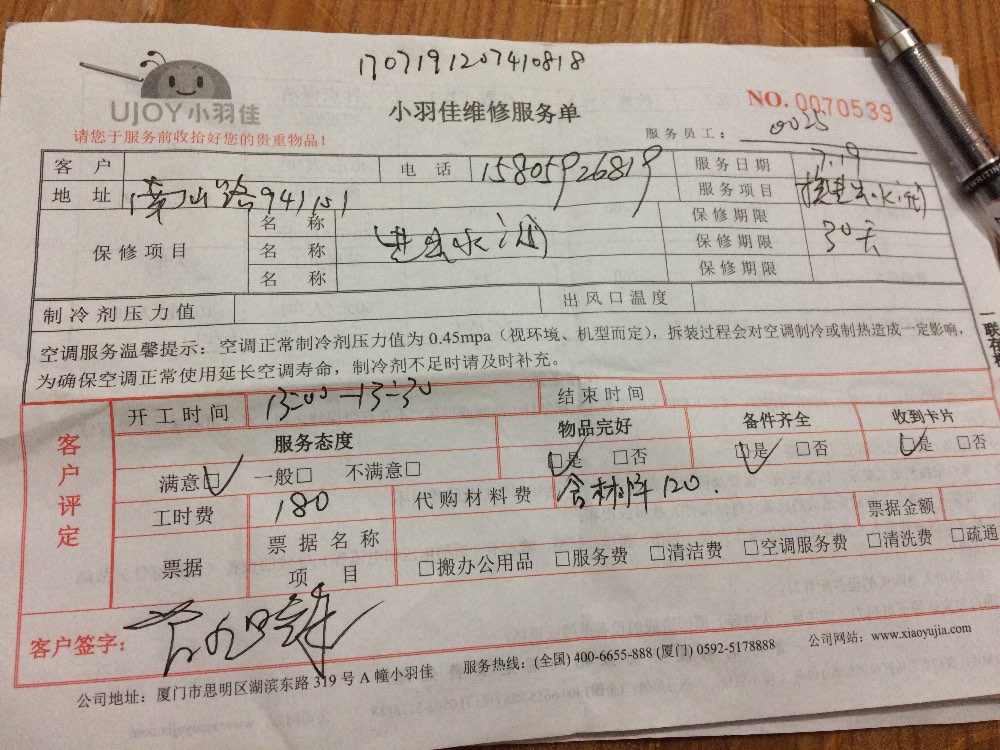 1707191207410818
UJOY小羽佳
小羽佳维修服务单
NO. 0070539
请您于服务前收拾好您的贵重物品！
服务员工： 0025
客户 电话 15805926819 服务日期 7.19
地址 941 服务项目
保修项目 名称 保修期限
名称 保修期限 30天
名称 保修期限
制冷剂压力值 出风口温度
空调服务温馨提示：空调正常制冷剂压力值为 0.45mpa（视环境、机型而定），拆装过程会对空调制冷或制热造成一定影响，
为确保空调正常使用延长空调寿命，制冷剂不足时请及时补充。
客户评定
开工时间 13:00—13:30 结束时间
服务态度 物品完好 备件齐全 收到卡片
满意□ 一般□ 不满意□ □是 □否 □是 □否 □是 □否
工时费 180 代购材料费 含材料120. 票据金额
票据 票据名称
项目 □搬办公用品 □服务费 □清洁费 □空调服务费 □清洗费 □疏通
客户签字：
公司地址：厦门市思明区湖滨东路 319 号 A 幢小羽佳 服务热线：(全国) 400-6655-888 (厦门) 0592-5178888 公司网站：www.xiaoyujia.com